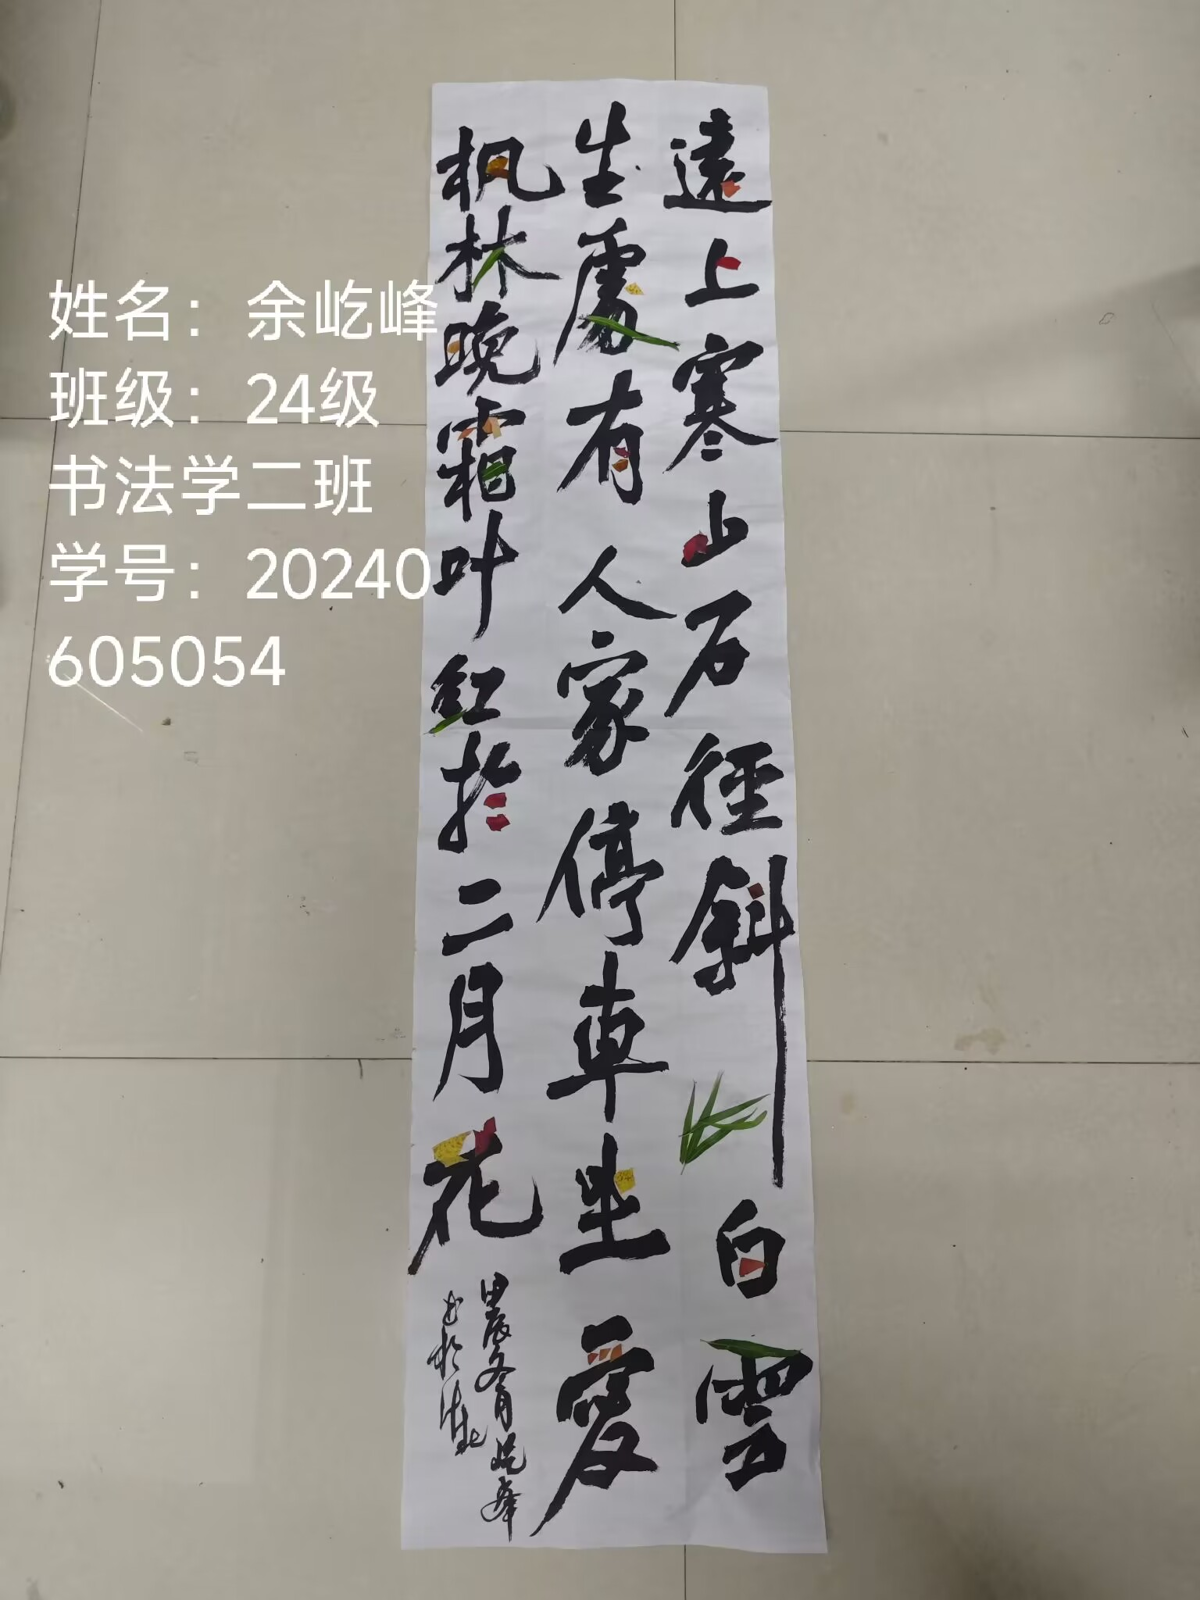 姓名：余屹峰
班级：24级
书法学二班
学号：20240
605054
遠上寒山石径斜白雲
生處有人家停車坐愛
枫林晚霜叶红於二月花
甲辰冬月屹峰
书於淮北